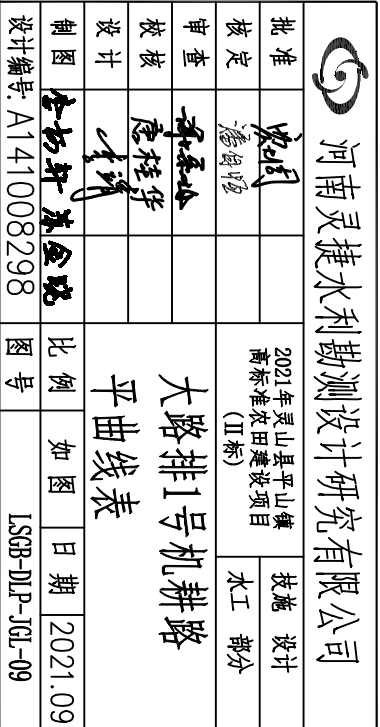 河南灵捷水利勘测设计研究有限公司
批准
核定
审查
校核
设计
制图
设计编号: A141008298
2021年灵山县平山镇
高标准农田建设项目
(Ⅱ标)
技施 设计
水工 部分
大路排1号机耕路
平曲线表
比例 如图 日期 2021.09
图号 LSGB-DLP-JGL-09